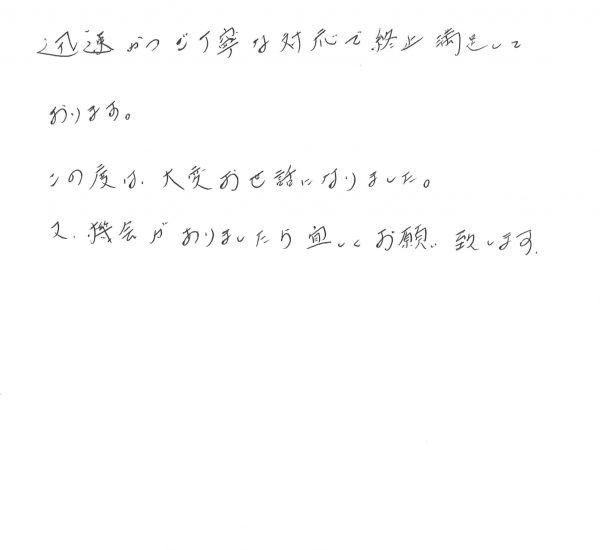 迅速かつご丁寧な対応で終止満足して
おります。
この度は、大変お世話になりました。
又、機会がありましたら宜しくお願い致します。